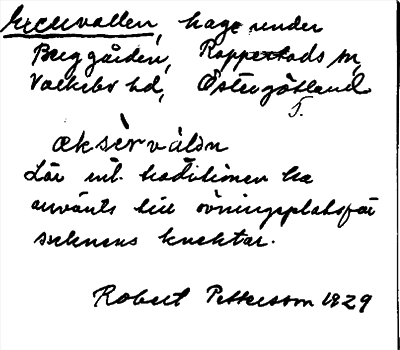 Excervallen, hage under
Berggården, Rappestads sn,
Valkebo hd, Östergötland
5.
æksèrválən
Lär enl. traditionen ha
använts till övningsplats för
socknens knektar.
Robert Pettersson 1929